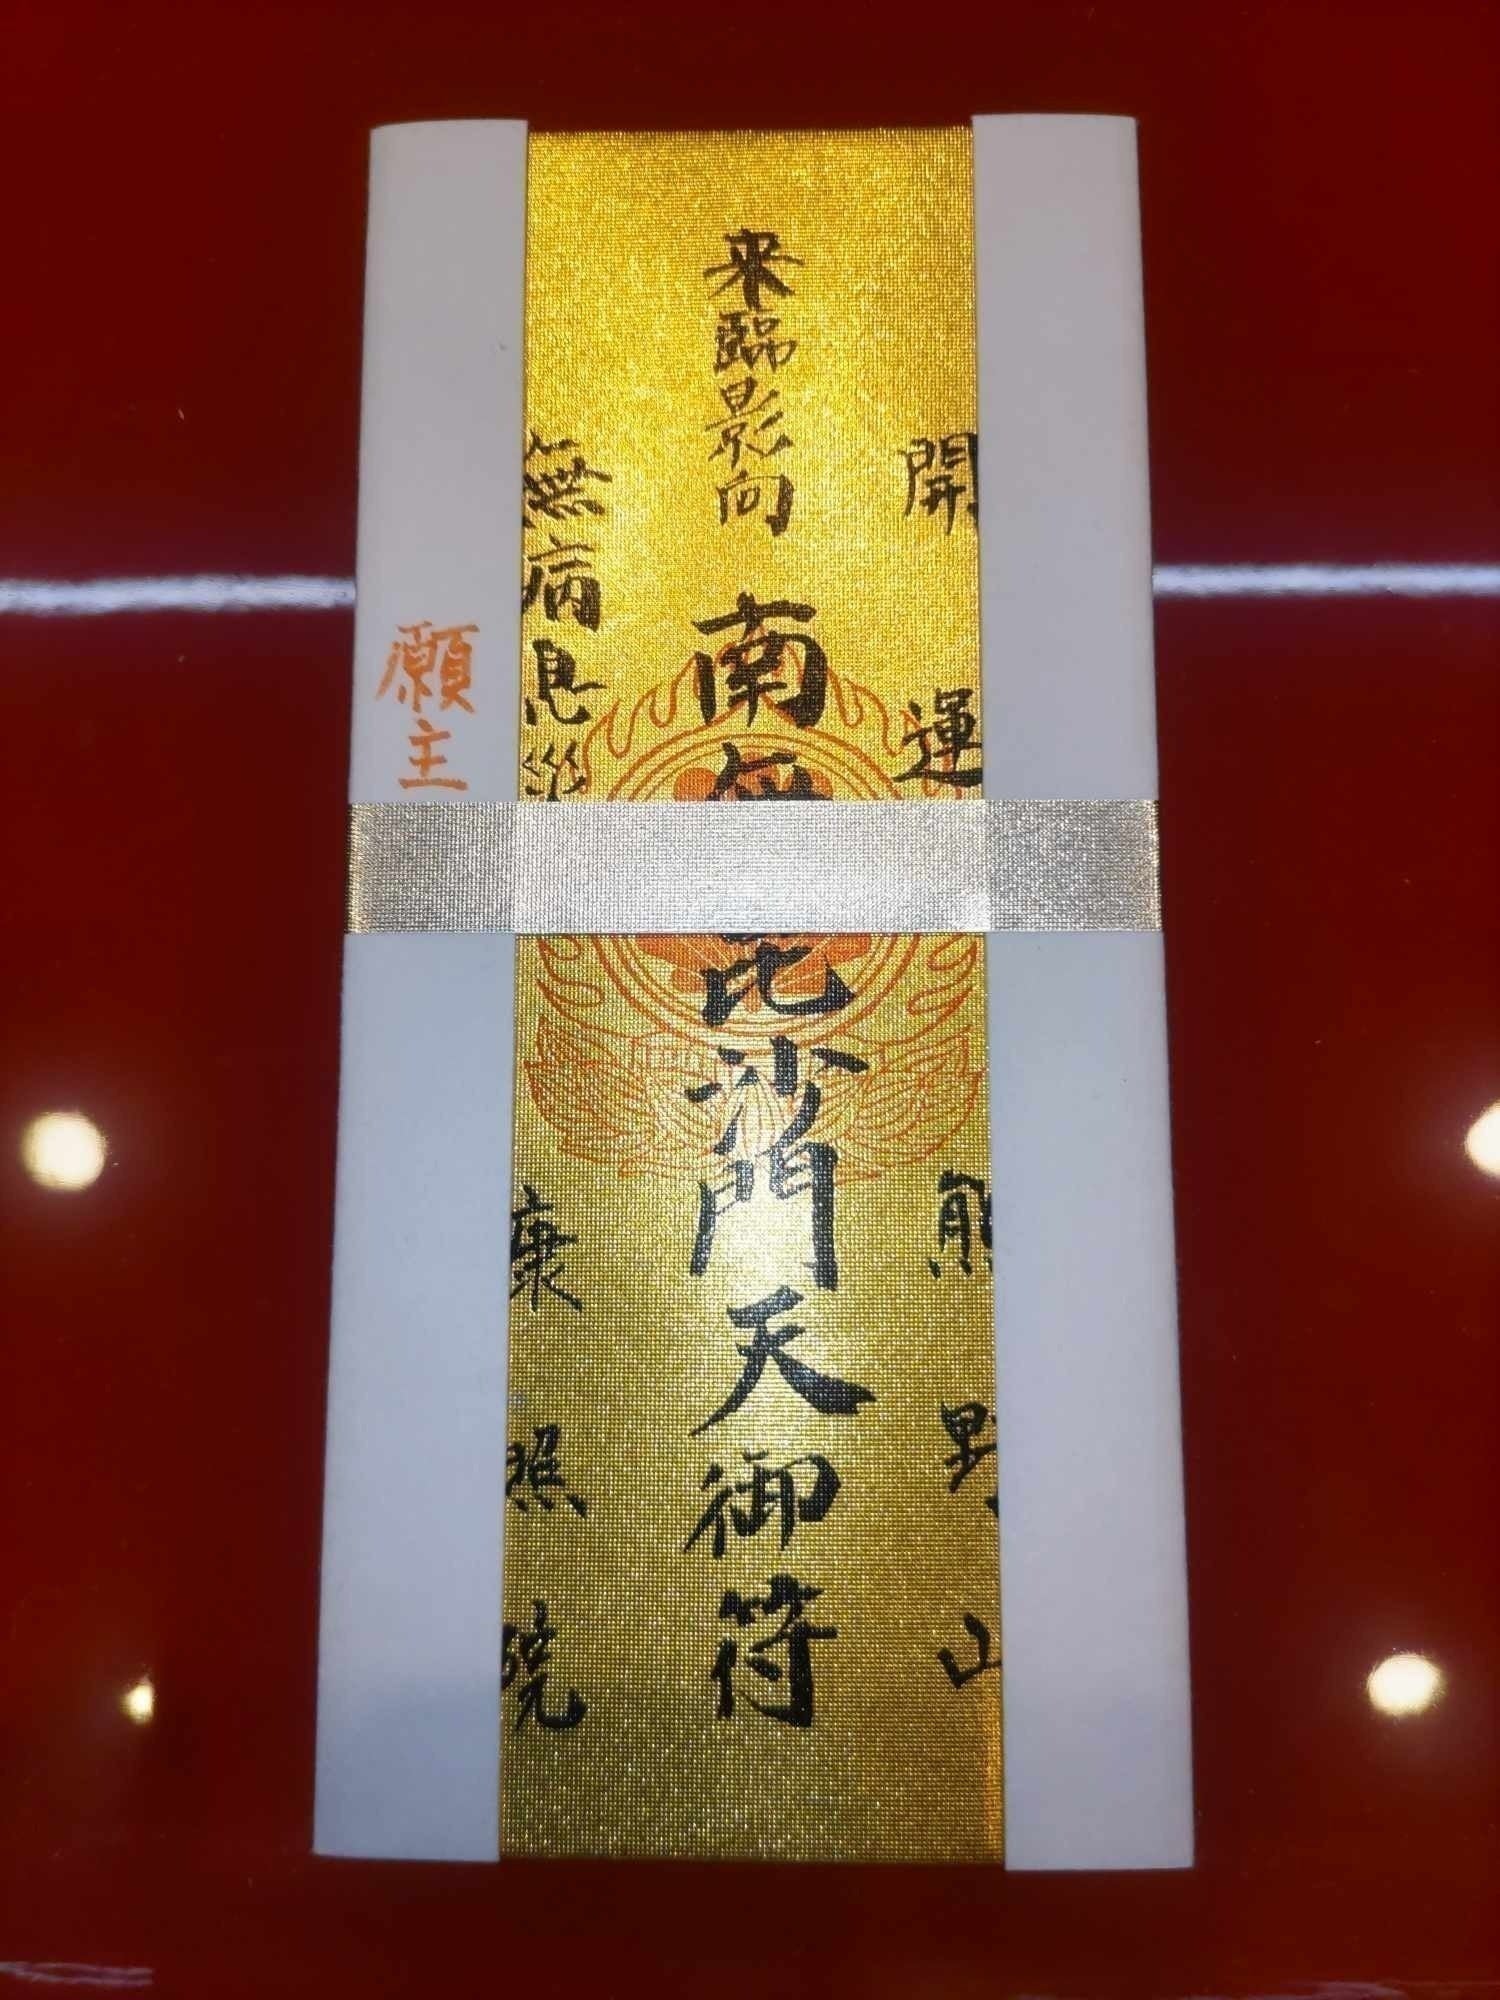 開運
熊野山
来臨影向
南無毘沙門天御符
無病息災
康照
願主